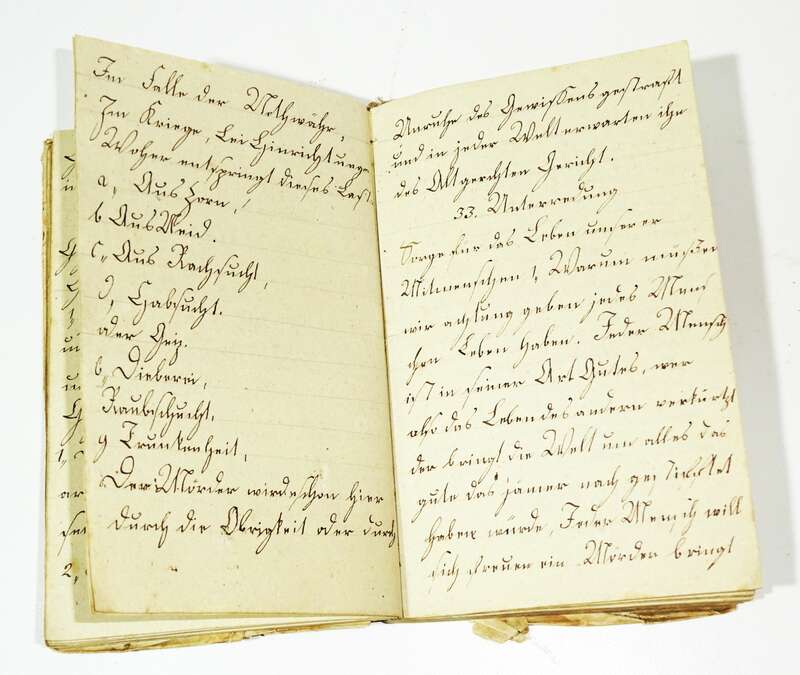 Im Falle der Nothwähr,
Im Kriege, bei Hinrichtunge
Woher entspringt dieses Last.
a, Aus Zorn,
b Aus Neid.
c, Aus Rachsucht,
d, Habsucht.
oder Geiz.
Dieberei,
Raubschucht,
g Trunkenheit,
Der Mörder wird schon hier
durch die Obrigkeit oder durch
Unruhe des Gewissens gestraft
und in jeder Welt erwarten ihn
des Altgerechten Gericht.
33. Unterredung
Sorge für das Leben unserer
Mitmenschen 1, Warum müssen
wir achtung geben jedes Mens
chen Leben haben. Jeder Mensch
ist in seiner Art Gutes, wer
also das Leben des andern verkürtzt
der bringt die Welt um alles das
gute das jämer nach
haben würde, Jeder Mensch will
sich freuen ein Mörder bringt